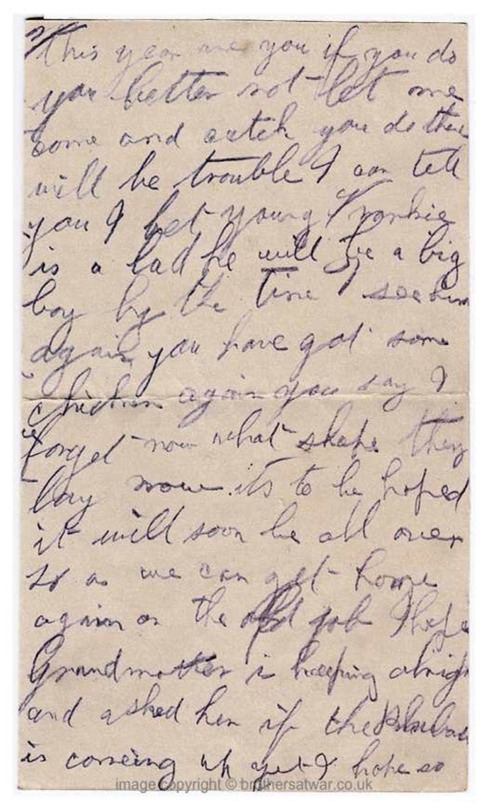 this year are you if you do
you better not let me
come and catch you do there
will be trouble I can tell
you I bet young Frankie
is a lad he will be a big
boy by the time I see him
again you have got some
chicken again you say I
forget now what shape they
lay now its to be hoped
it will soon be all over
so as we can get home
again on the old job I hope
Grandmother is keeping alright
and asked her if the
is comeing up yet I hope so
image copyright © brothersatwar.co.uk